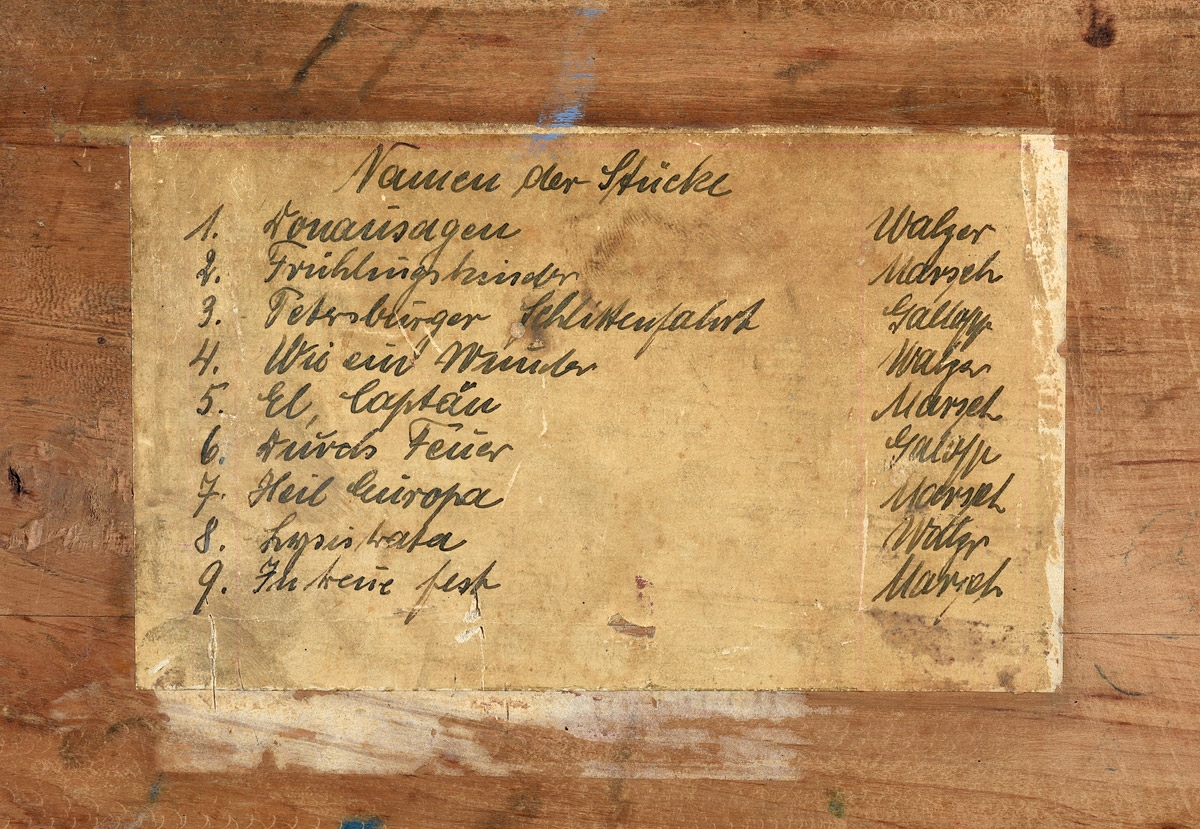 Namen der Stücke
1. Donausagen Walzer
2. Frühlingskinder Marsch
3. Petersburger Schlittenfahrt Gallopp
4. Wie ein Wunder Walzer
5. El Captän Marsch
6. Durchs Feuer Galopp
7. Heil Europa Marsch
8. Lysistrata
9. In treue fest Marsch